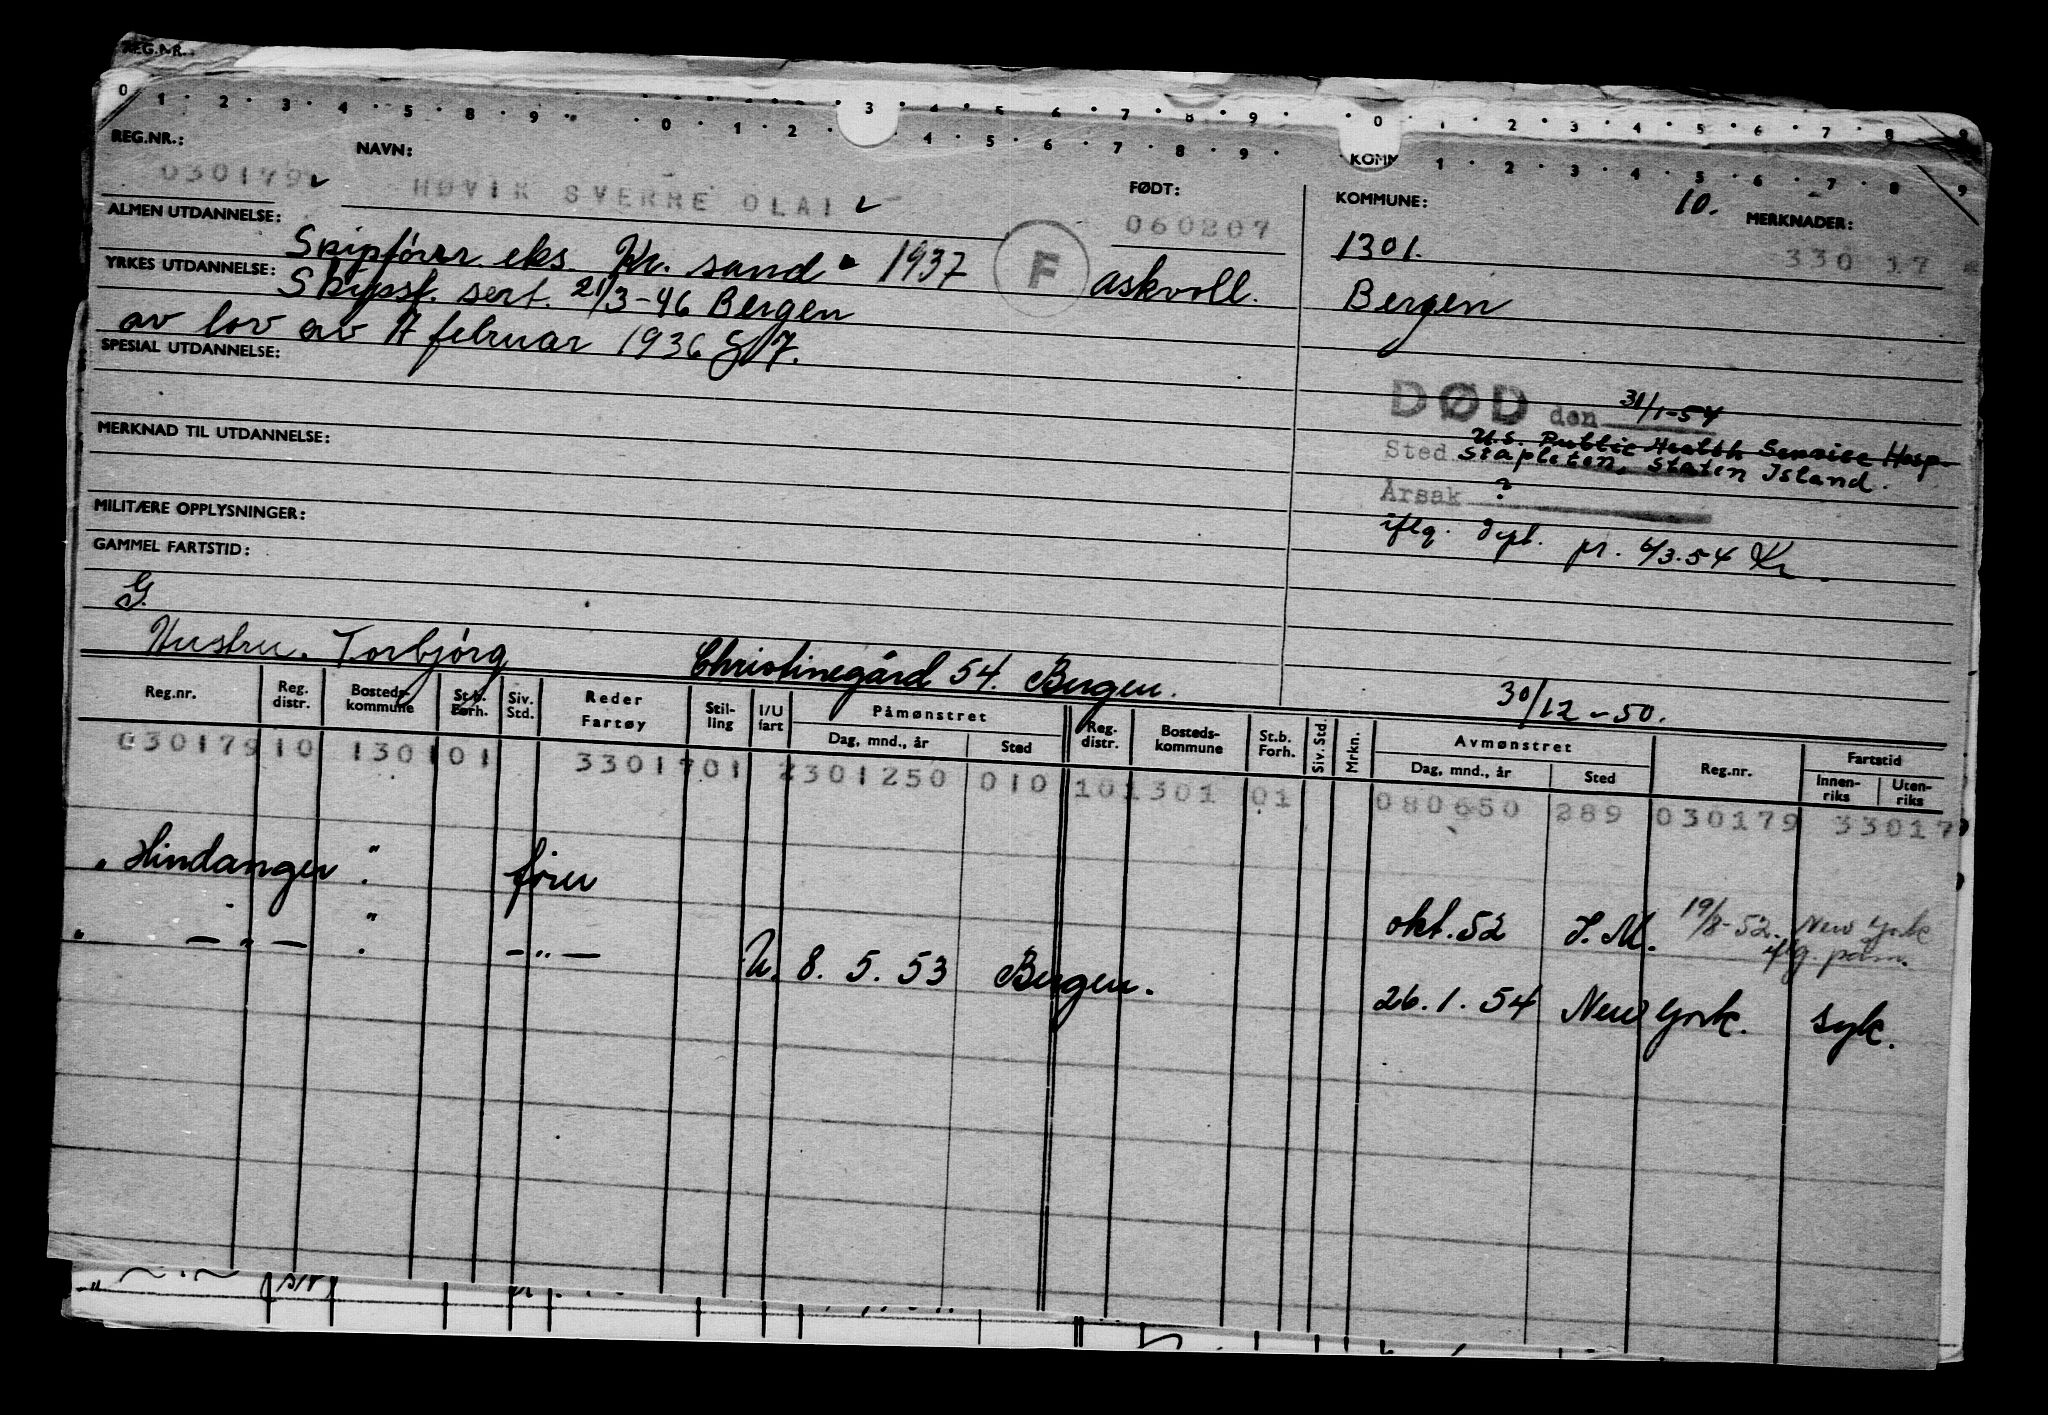 REG.NR.
0 1 2 3 4 5 8 9 0 1 2 3 4 5 6 7 8 9 0 1 2 3 4 5 6 7 8 9
REG.NR.: NAVN: FØDT: KOMMUNE: 10. MERKNADER:
030179 HØVIK SVERRE OLAI 060207 1301. 330 17
ALMEN UTDANNELSE: Skipfører eks. Kr. sand 1937 F askvoll. Bergen
YRKES UTDANNELSE: Skipsf. sert. 21/3-46 Bergen
av lov av 17 februar 1936 § 7.
SPESIAL UTDANNELSE:
DØD den 31/1-54
MERKNAD TIL UTDANNELSE:
Sted U.S. Public Health Service Hosp.
Stapleton, Staten Island.
Årsak ?
MILITÆRE OPPLYSNINGER:
iflg. dept. pr. 6/3.54 Kr.
GAMMEL FARTSTID:
G.
Hustru. Torbjörg Christinegård 54. Bergen.
30/12-50.
Reg.nr. Reg. distr. Bosteds-kommune St.b. Forh. Siv. Std. Reder Fartøy Stil-ling I/U fart Påmønstret Dag, mnd., år Sted Reg. distr. Bosteds-kommune St.b. Forh. Siv. Std. Mrkn. Avmønstret Dag, mnd., år Sted Reg.nr. Fartstid Innen-riks Uten-riks
030179 10 1301 01 33017 01 2 301250 010 10 1301 01 080650 289 030179 33017
" Hindanger " förer okt. 52 19/8-52. New York
iflg. påm.
" — " — " — " — U. 8. 5. 53 Bergen. 26. 1. 54 New York. syk.